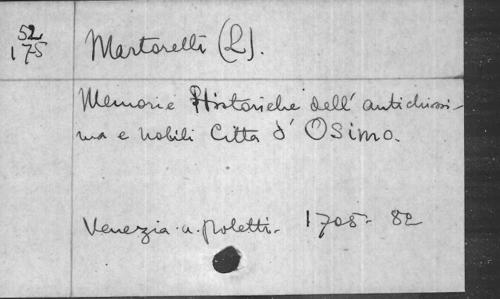 52
175
Martorelli (L).
Memorie Historiche dell' antichissi-
ma e nobili Citta d' Osimo.
Venezia. a. poletti. 1705- 82